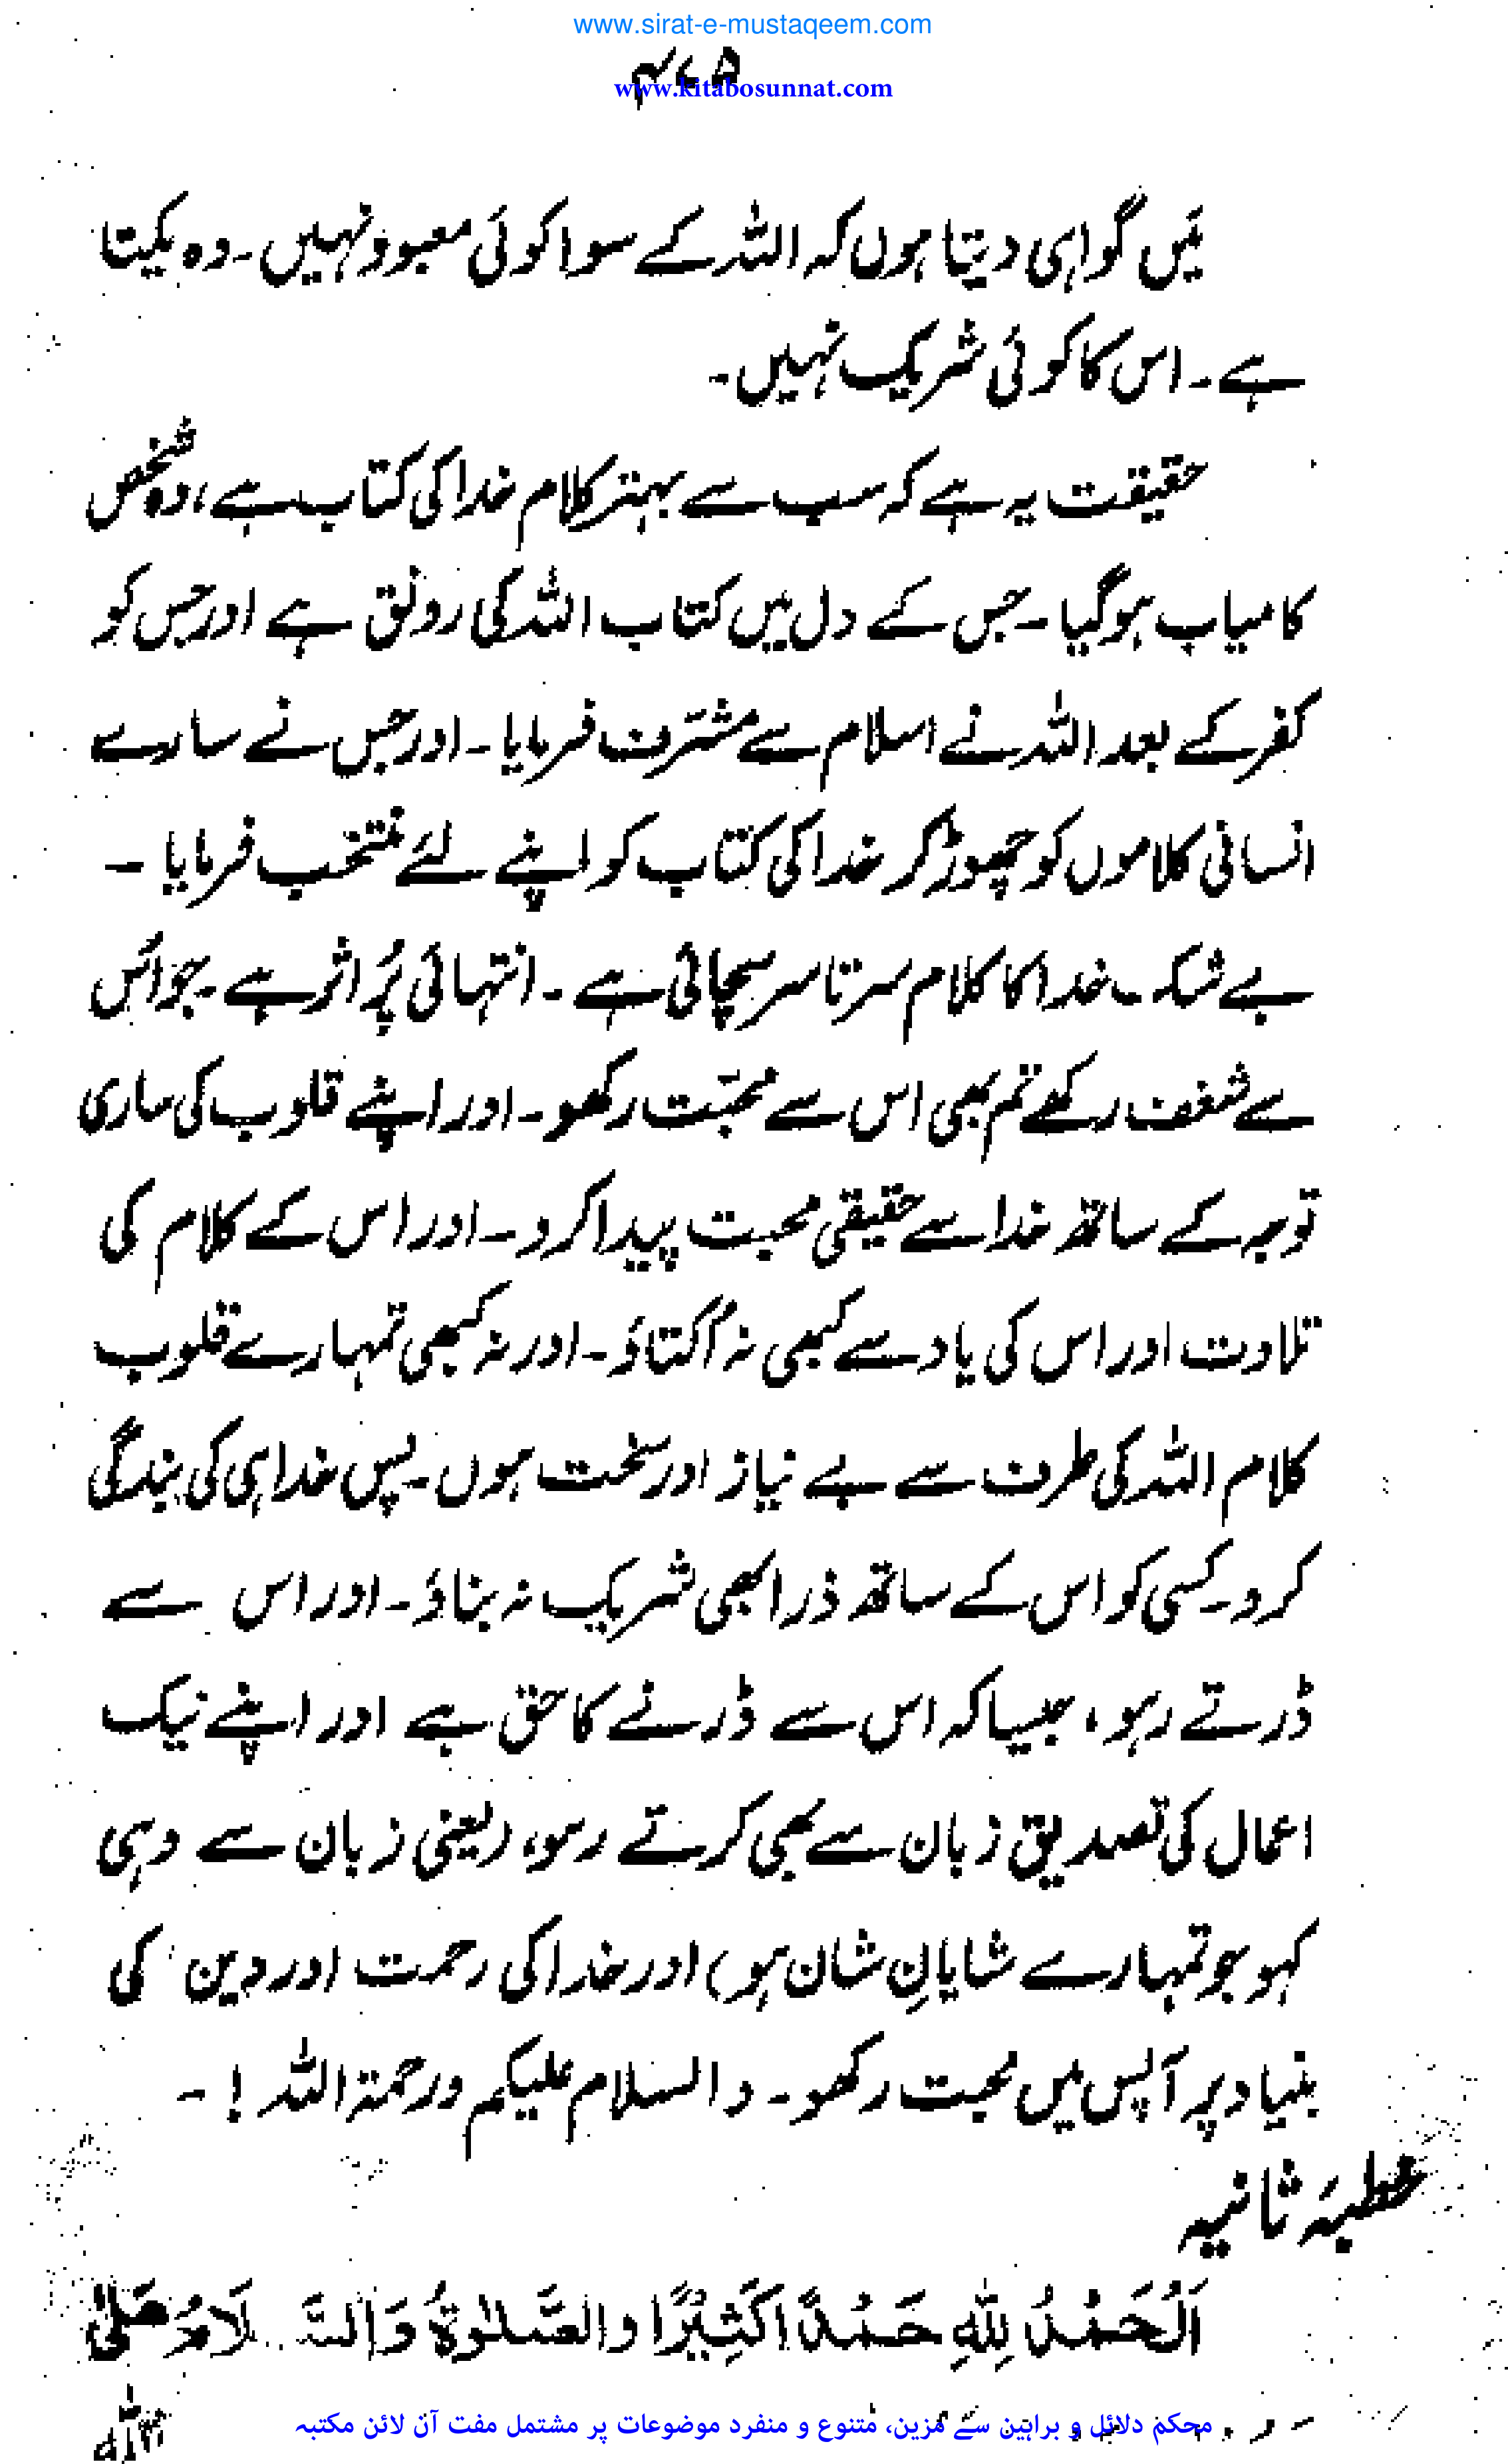 www.sirat-e-mustaqeem.com
۴۷۵
www.kitabosunnat.com
میں گواہی دیتا ہوں کہ اللہ کے سوا کوئی معبود نہیں۔ وہ یکتا
ہے۔ اس کا کوئی شریک نہیں۔
حقیقت یہ ہے کہ سب سے بہتر کلام خدا کی کتاب ہے، وہ شخص
کامیاب ہوگیا۔ جس کے دل میں کتاب اللہ کی رونق ہے اور جس کو
کفر کے بعد اللہ نے اسلام سے مشرّف فرمایا۔ اور جس نے سارے
انسانی کلاموں کو چھوڑ کر خدا کی کتاب کو اپنے لئے منتخب فرمایا۔
بے شک خدا کا کلام سرتاسر سچائی ہے۔ انتہائی پُر اثر ہے۔ جو اُس
سے شغف رکھے تم بھی اس سے محبّت رکھو۔ اور اپنے قلوب کی ساری
توجہ کے ساتھ خدا سے حقیقی محبت پیدا کرو۔ اور اس کے کلام کی
تلاوت اور اس کی یاد سے کبھی نہ اُکتاؤ۔ اور نہ کبھی تمہارے قلوب
کلام اللہ کی طرف سے بے نیاز اور سخت ہوں۔ پس خدا ہی کی بندگی
کرو۔ کسی کو اس کے ساتھ ذرا بھی شریک نہ بناؤ۔ اور اس سے
ڈرتے رہو، جیسا کہ اس سے ڈرنے کا حق ہے اور اپنے نیک
اعمال کی تصدیق زبان سے بھی کرتے رہو، (یعنی زبان سے وہی
کہو جو تمہارے شایانِ شان ہو) اور خدا کی رحمت اور دین کی
بنیاد پر آپس میں محبت رکھو۔ والسلام علیکم ورحمۃ اللہ!۔
خطبۂ ثانیہ
اَلْحَمْدُ لِلّٰهِ حَمْدًا كَثِيْرًا والصَّلٰوةُ وَالسَّلَامُ عَلٰى
محکم دلائل و براہین سے مزین، متنوع و منفرد موضوعات پر مشتمل مفت آن لائن مکتبہ